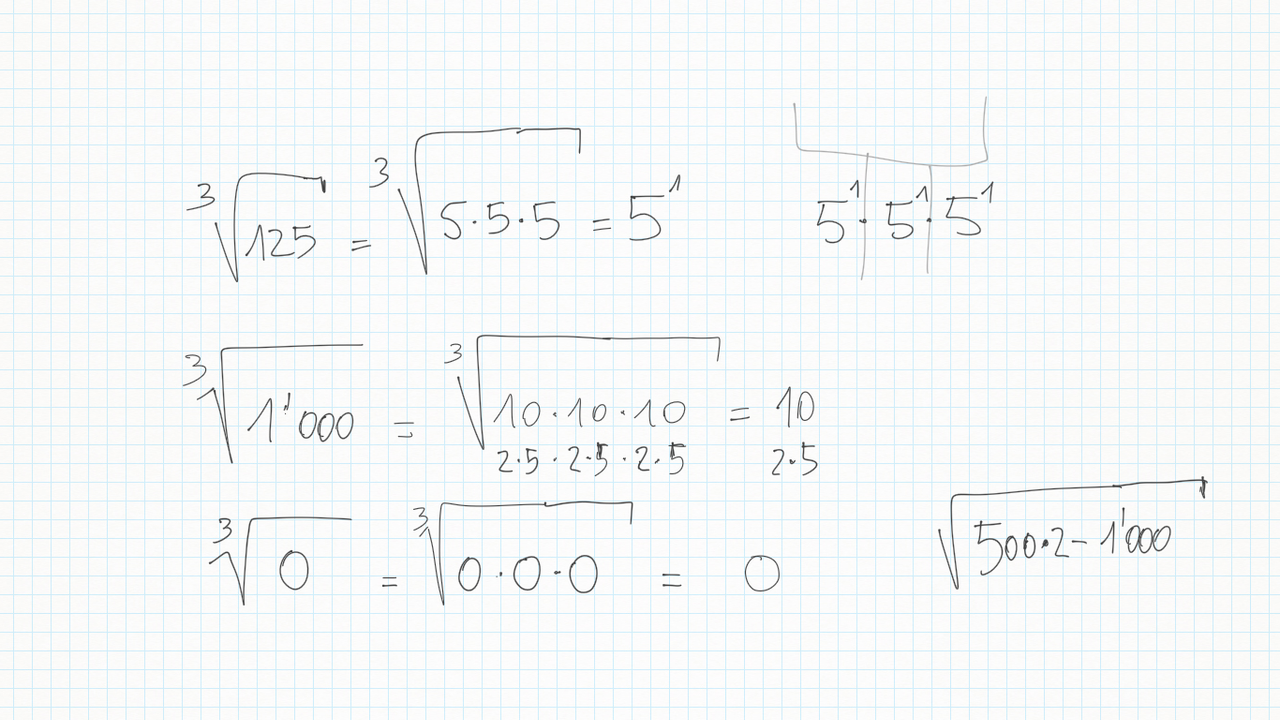 ³√125 = ³√5·5·5 = 5¹ 5¹·5¹·5¹
³√1'000 = ³√10·10·10 = 10
2·5·2·5·2·5 2·5
³√0 = ³√0·0·0 = 0 √500·2-1'000